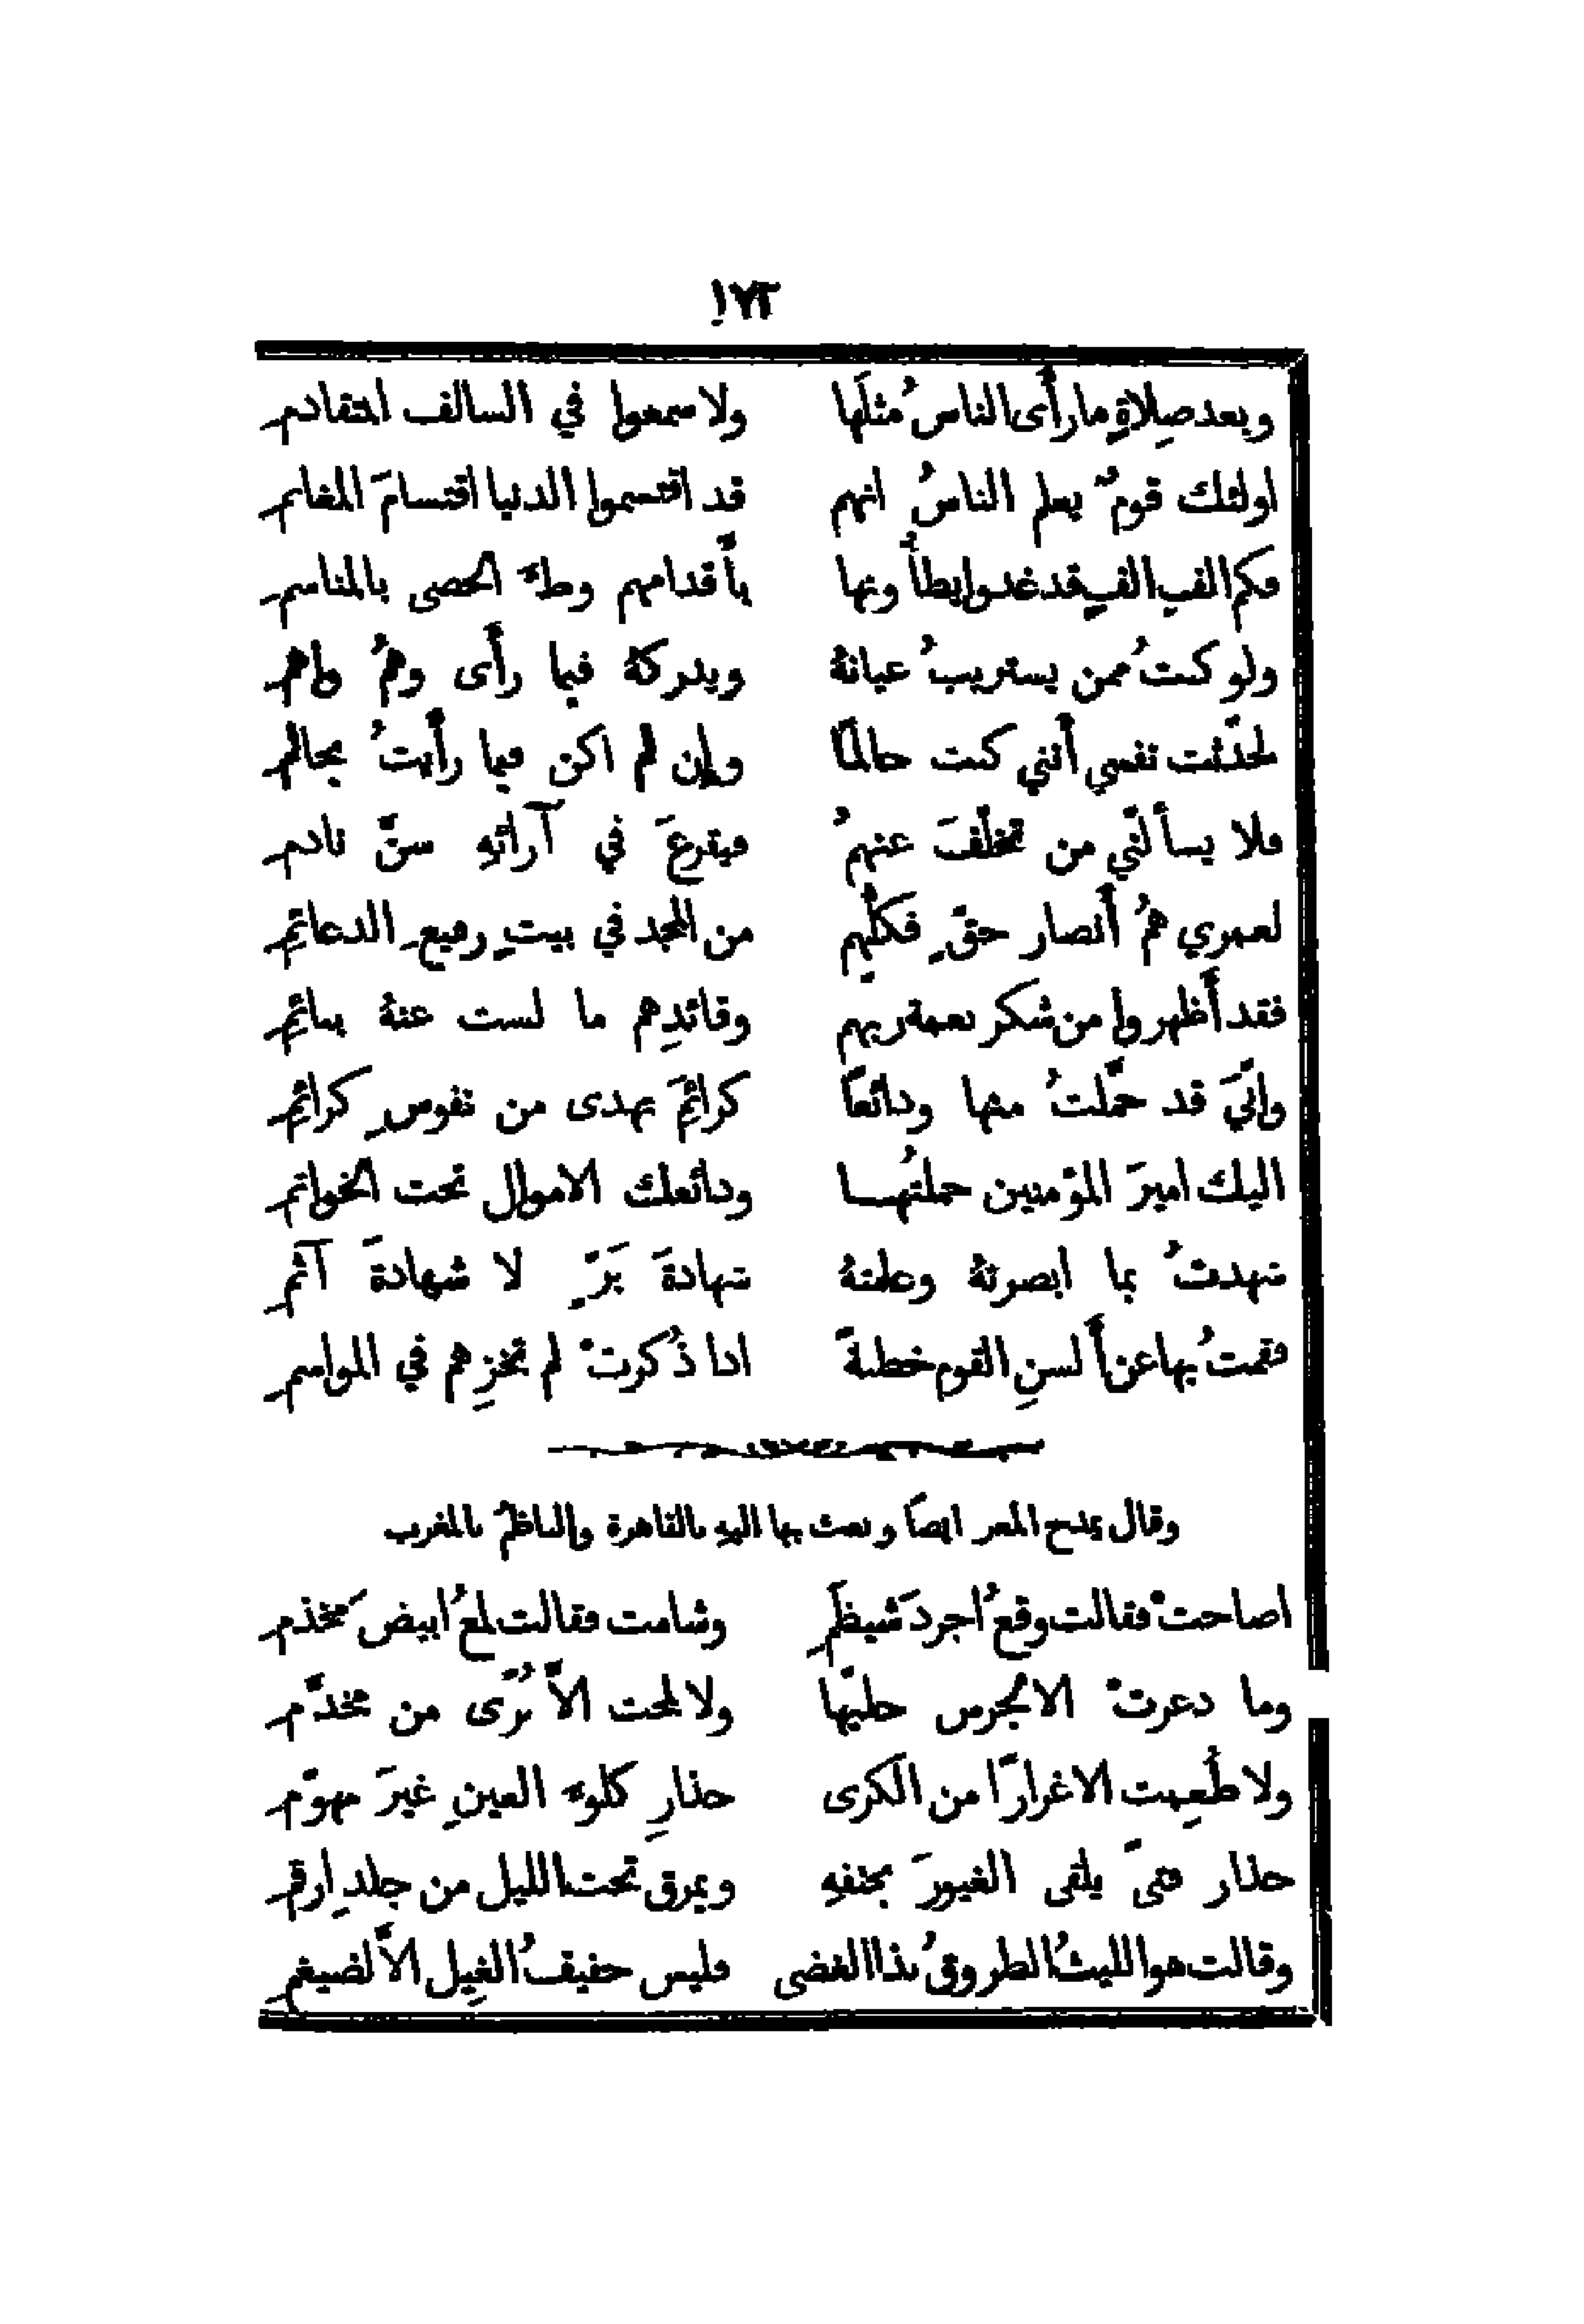 ١٧٢
وبعد صِلاةٍ ما رأَى الناسُ مثلَها ولا سمعوا في السالف المتقادمِ
اولئك قومٌ يعلم الناسُ انهم قد اقتسموا الدنيا اقتسامَ المغانمِ
فكم الفِ الفٍ قد غدوا يطأُونها بأَقدامهم وطءَ الحصى بالمناسمِ
ولو كنتُ ممن يستريبُ عيانهُ ويدركهُ فيما رأَى وهمُ واهمِ
لحدَّثت نفسي أَنني كنت حالمًا وإن لم اكن فيما رأَيتُ بحالمِ
فلا يسأَلنّي من تخلّفَ عنهمُ فيقرعَ في آرائهِ سنَّ نادمِ
لعمري همُ أَنصار حقٍّ فكلُّهم من المجد في بيتٍ رفيعِ الدعائمِ
فقد أَظهروا من شكر نعمة ربهم وقائدِهم ما لست عنهُ بنائمِ
وإنّيَ قد حُمّلتُ منها ودائعًا كرائمَ تهدى من نفوسٍ كرائمِ
اليك اميرَ المؤمنين حملتُهـا ودائعك الاموال تحت الخواتمِ
شهدتُ بما ابصرتهُ وعلمتهُ شهادةَ بَرٍّ لا شهادةَ آثمِ
فقمتُ بها عن أَلسنِ القوم خطبةً اذا ذُكرتْ لم تخزِهم في المواسمِ
وقال يمدح المعز ايضًا وبعث بها اليهِ بالقاهرة والناظمُ بالمغرب
اصاختْ فقالت وقعُ اجردَ شيظمِ وشامت فقالت لمعُ ابيضَ مخذمِ
وما ذعرتْ الا لجرس حليّها ولا لمحت الاَّ بُرًى من مخدَّمِ
ولا طُعِمت الا غرارًا من الكرى حذارِ كلوءِ العينِ غيرَ مهوّمِ
حذار فتىً يلقى الغيورَ بحتفهِ ويمرق تحت الليل من جلدِ ارقمِ
وقالت هو الليثُ الطروقُ بذا الغضى فليس حفيفُ الغِيل الاَّ لضيغمِ